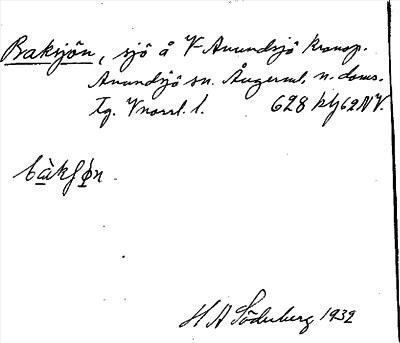 Baksjön, sjö å V Anundsjö kronop.
Anundsjö sn. Ångerml. n. doms.
tg. Vnorrl. l. 628 62NV.
bàkſȯn
H A Söderberg 1932